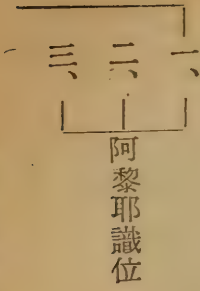 一、
二、
三、
阿黎耶識位